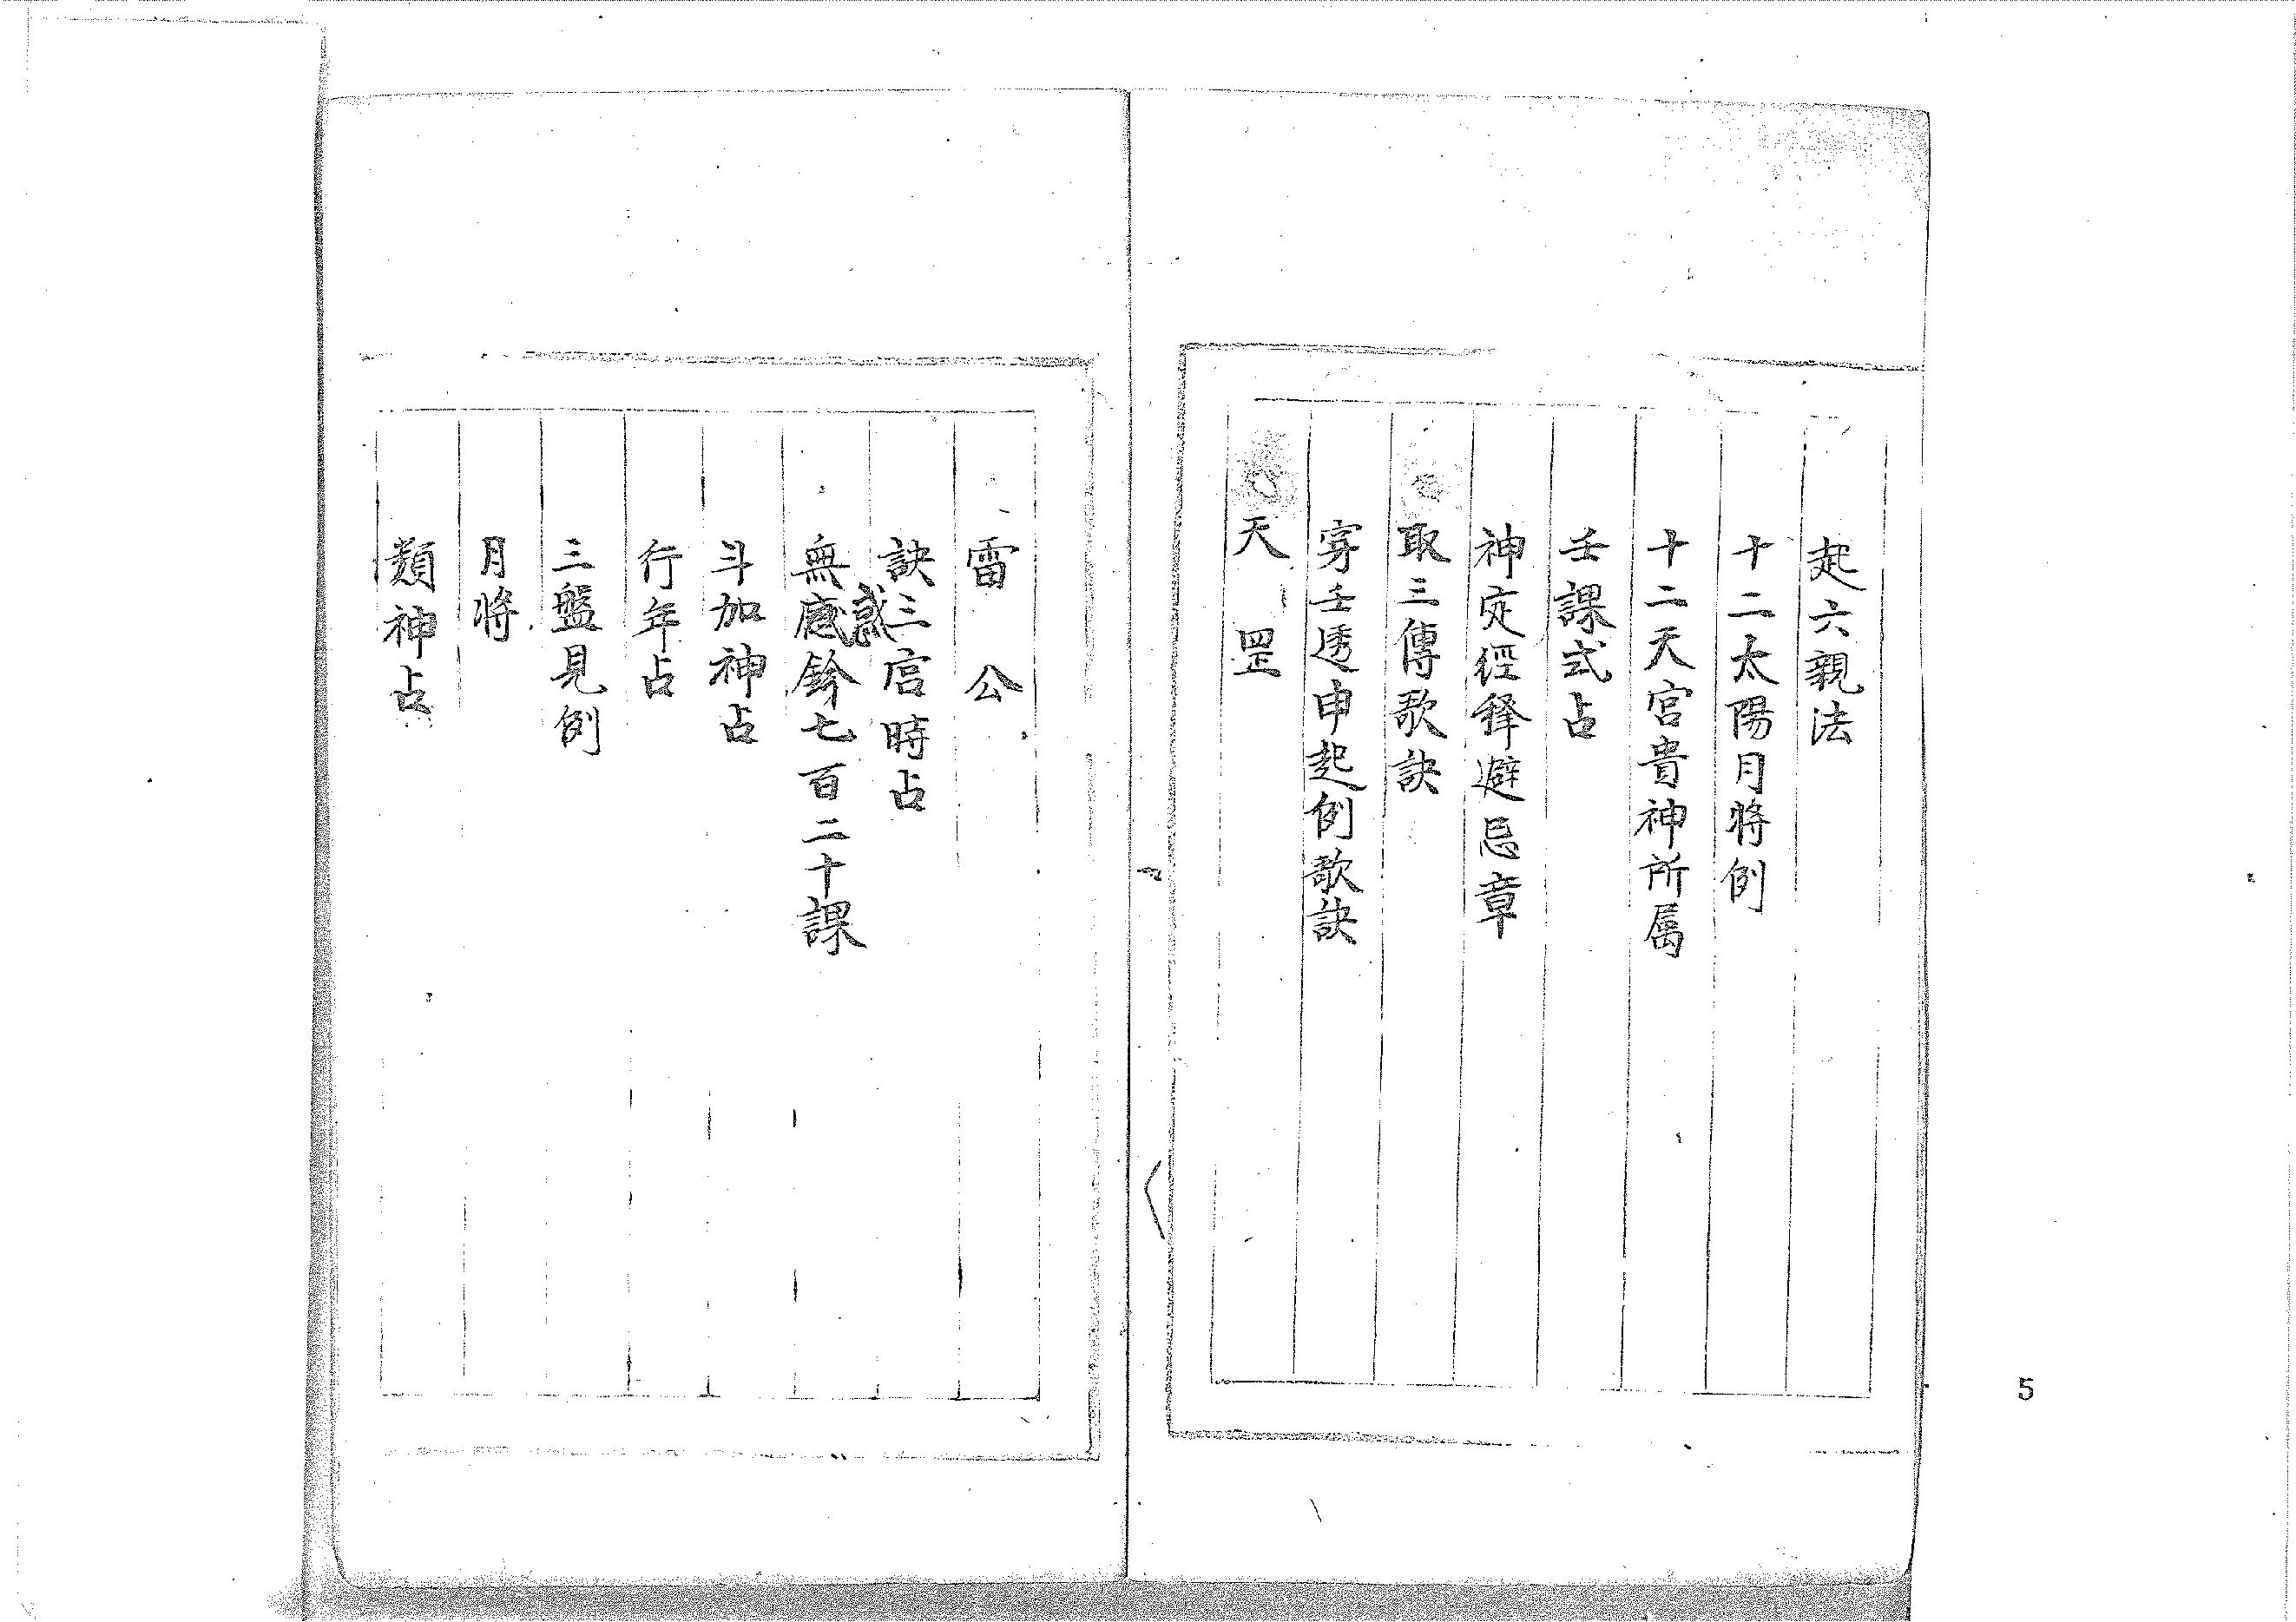 起六親法
十二太陽月將例
十二天官貴神所屬
壬課式占
神定經釋避忌章
取三傳歌訣
穿壬透申起例歌訣
天罡
雷公
訣三宫時占
無惑鈐七百二十課
斗加神占
行年占
三盤見例
月將
類神占
5